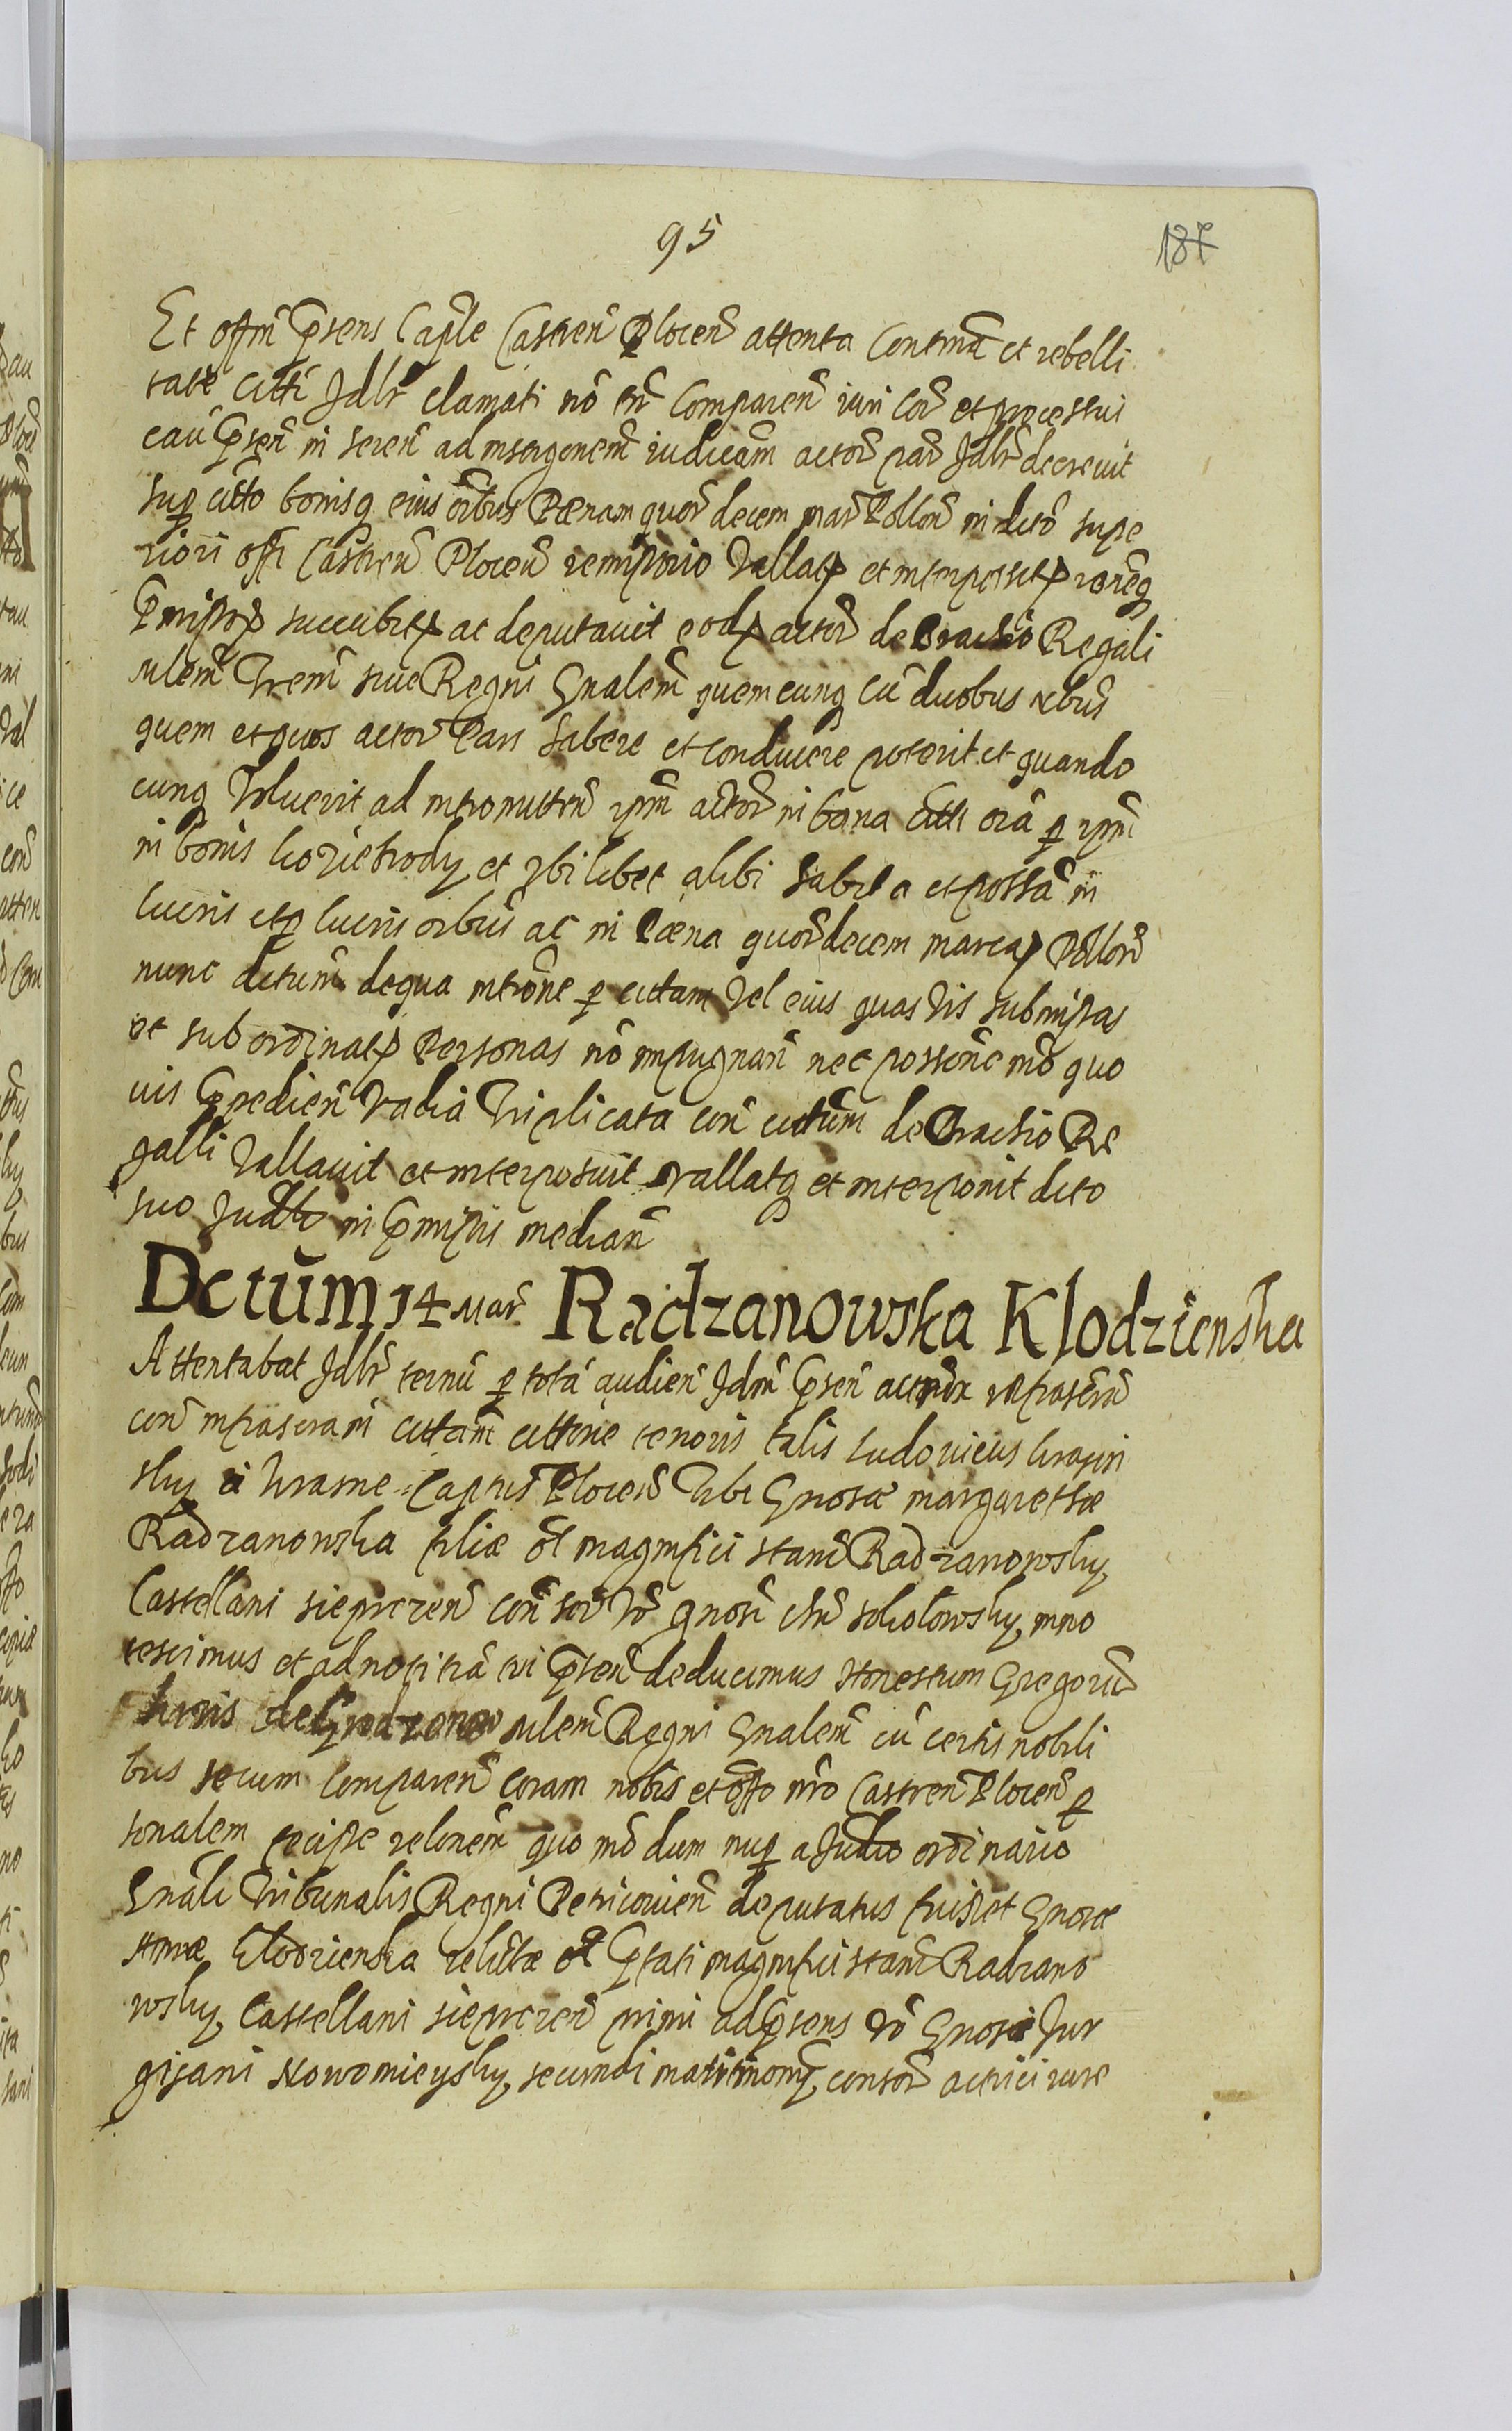 95
187
Et offm̄ p̄sens Capłe Castren̄ Plocen̄ attenta Contmā et rebelli
tate citti Jdłr clamati nō tn̄ Comparen̄ iuri Cor̄ et processui
cau p̄sen̄ in seren̄ ad instigonem̄ iudicām actor̄ par̄ Jdłr decreuit
sup citto bonisq eius oībus Pænam quor̄ decem mar̄ Pollon̄ in dictō supe
riori offi Castren̄ Plocen̄ Vallatą et interpositą
p̄missor̄ succubitą ac deputauit eodą actor̄ de Brachiō Regali
mlem̄ trem̄ siue Regni Gnalem̄ quemcunq cū duobus nbus
quem et quos actor Pars habere et conducere poterit et quando
cunq Voluerit ad intromitten̄ ipm̄ actor̄ in bona citti oīa p ipm̄
in bonis et Vbilibet alibi habita et possā in
lucris et p lucris oībus ac in Pæna quor̄ decem marcą Pollon̄
nunc dictum̄ de qua intrōne p cittam Vel eius quasvis submissas
et subordinatą Personas nō impugnan̄ nec possesne mō quo
uis p̄pedien̄ Vadiā Triplicata con̄ cittum̄ de Brachio Re
galli Vallauit et interposuit Vallatq et interponit dicto
suo Judtō in p̄missis median̄
Dctum 14 Mar̄ Radzanowska Klodzienska
Attentabat Jdłr ternū p totā audien̄ Jdm̄ p̄sen̄ actrix infrascrā
con̄ infrascram̄ cittam̄ cittōnē tenoris talis Ludouicus Krasin
sky a Krasne Captus Plocen̄ Tibi Gnosæ margarethæ
Radzanowska filiæ ol̄ magnifici Stani Radzanowsky
Castellani Sieprcen̄ con̄sor̄ Vō Gnosi Sokołowsky inno
tescimus et ad notitiā tui p̄sen̄ deducimus Honestum Gregoriū
mlem̄ Regni Gnalem̄ cū certis nobili
bus secum Comparen̄ Coram nobis et offo nrō Castren̄ Plocen̄ p
sonalem fecisse relonem̄ quo mō dum nup a Judio ordinario
Gnali Tribunalis Regni Petricouien̄ deputatus fuisset Gnosæ
Annæ Klodzienska relictæ ol̄ p̄fati magnifici Stani Radzano
wsky Castellani Sieprcen̄ primi ad p̄sens Vō Gnosi Jur
gisani Nowomieysky secundi matrimonÿ consor̄ actrici iure